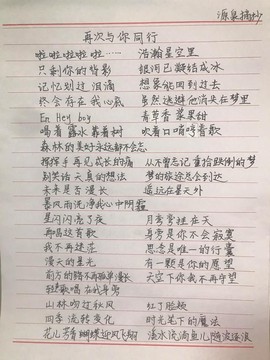 源泉摘抄
再次与你同行
啦啦啦啦啦…… 浩瀚星空里
只剩你的背影 银河已凝结成冰
记忆划过泪滴 想象能回到过去
终会存在我心底 虽然逃避他消失在梦里
En Hey boy 青草香 浆果甜
喝着露水靠着树 吹着口哨哼着歌
森林的美好永远都不会忘
挥挥手再见成长的痛 从不曾忘记重拾跌倒的梦
别笑话天真的想法 梦的旅途总会到达
未来是否漫长 遥远在星天外
暴风雨洗净我心中阴霾
星闪闪亮了夜 月弯弯挂在天
再唱这首歌 身旁是你不会寂寞
我不再迷茫 思念是唯一的行囊
漫天的星光 有一颗是你的愿望
前方的路不再孤单漫长 天空下你我不再守望
轻轻歌唱在我耳旁
山林吻过秋风 红了脸颊
四季流转变化 时光笔下的魔法
花儿芳香蝴蝶迎风飞翔 溪水流淌鱼儿随波逐浪